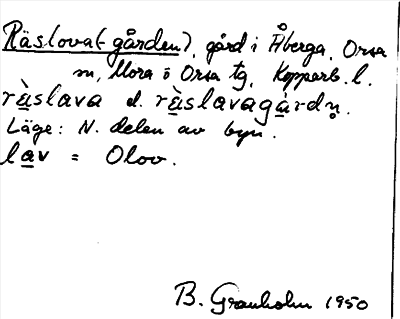 Räslova(-gården), gård i Åberga, Orsa
sn, Mora o Orsa tg, Kopparb. l.
ràslava el. ràslavagàrdn̥.
Läge: N. delen av byn.
lav = Olov.
B. Granholm 1950